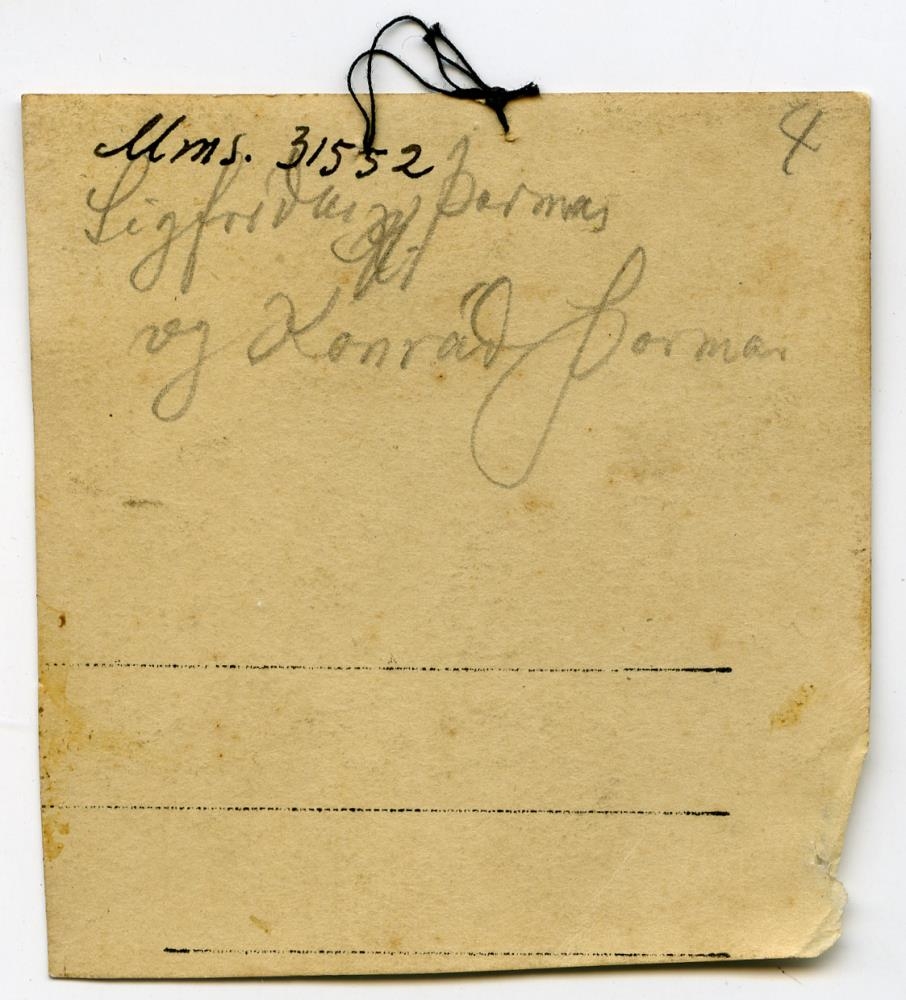 Mms. 31552
4
Sigfríður Þormar
og Konráð Þormar